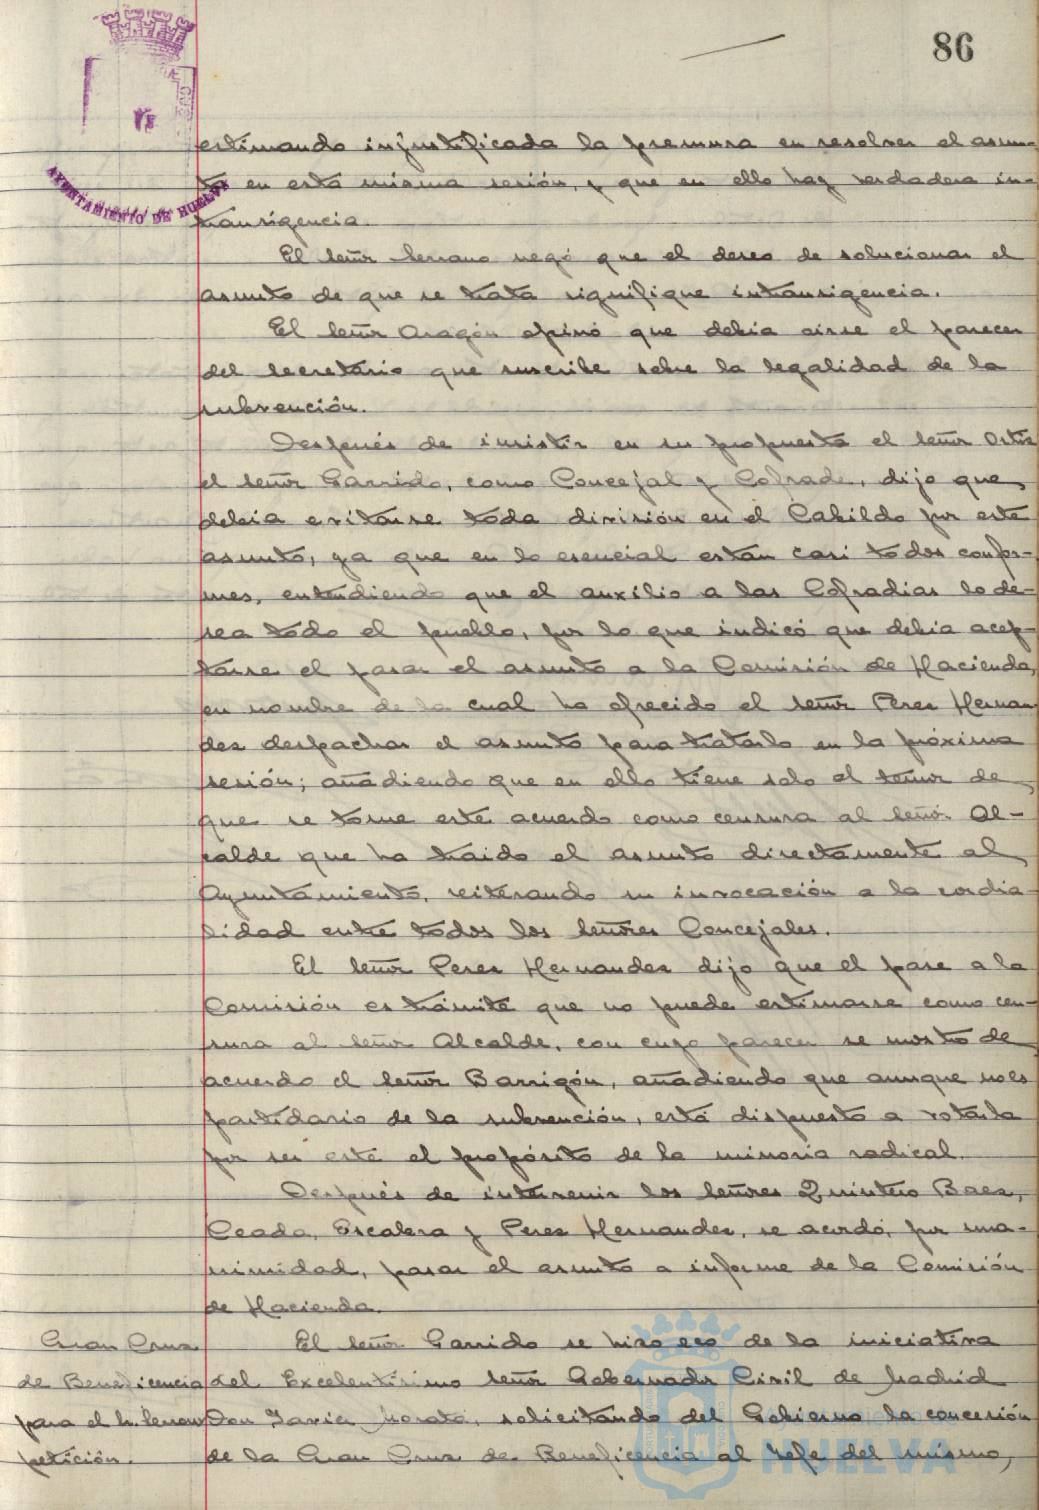 86
AYUNTAMIENTO DE HUELVA
estimando injustificada la premura en resolver el asun-
to en esta misma sesión, y que en ello hay verdadera in-
transigencia.
El señor Serrano negó que el deseo de solucionar el
asunto de que se trata signifique intransigencia.
El señor Aragón opinó que debia oirse el parecer
del Secretario que suscribe sobre la legalidad de la
subvención.
Después de insistir en su propuesta el señor Ortiz
el señor Garrido, como Concejal y Cofrade, dijo que
debia evitarse toda división en el Cabildo por este
asunto, ya que en lo esencial están casi todos confor-
mes, entendiendo que el auxilio a las Cofradias lo de-
sea todo el pueblo, por lo que indicó que debia acep-
tarse el pasar el asunto a la Comisión de Hacienda,
en nombre de la cual ha ofrecido el señor Perez Hernan-
dez despachar el asunto para tratarlo en la próxima
sesión; añadiendo que en ello tiene solo el temor de
que se tome este acuerdo como censura al señor Al-
calde que ha traido el asunto directamente al
Ayuntamiento, reiterando su invocación a la cordia-
lidad entre todos los señores Concejales.
El señor Perez Hernandez dijo que el pase a la
Comisión es trámite que no puede estimarse como cen-
sura al señor Alcalde, con cuyo parecer se mostró de
acuerdo el señor Barrigón, añadiendo que aunque no es
partidario de la subvención, está dispuesto a votarla
por ser este el propósito de la minoria radical.
Después de intervenir los señores Quintero Baez,
Ceada, Escalera y Perez Hernandez, se acordó, por una-
nimidad, pasar el asunto a informe de la Comisión
de Hacienda.
Gran Cruz
de Beneficencia
para el Sr. Lerroux
petición.
El señor Garrido se hizo eco de la iniciativa
del Excelentisimo señor Gobernador Civil de Madrid
Don Javier Morata, solicitando del Gobierno la concesión
de la Gran Cruz de Beneficencia al Jefe del mismo,
Ayuntamiento de
HUELVA